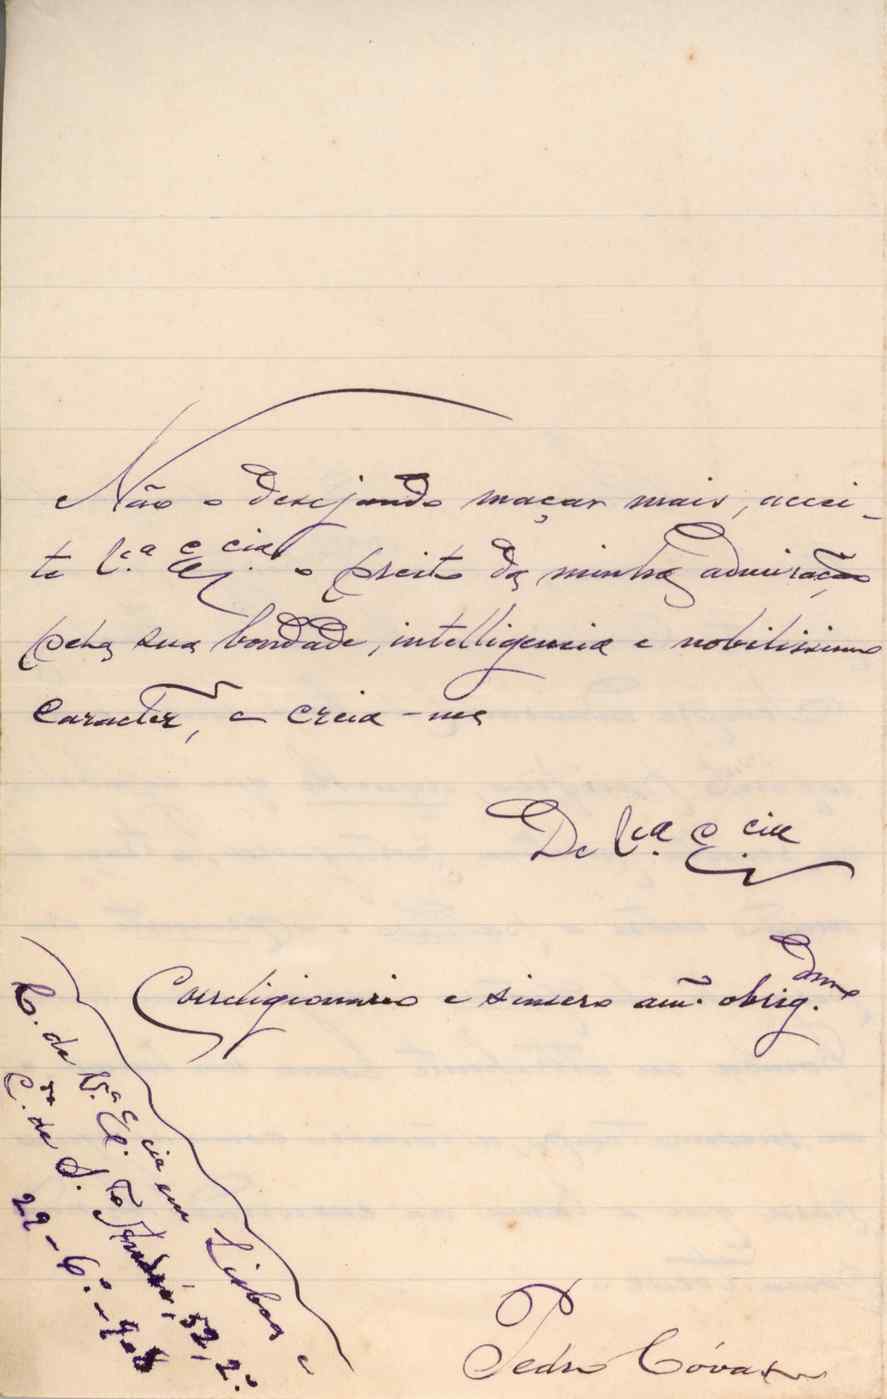 Não o desejando maçar mais, accei-
te V.ª E.cia o preito da minha admiração
pela sua bondade, intelligencia e nobilissimo
caracter, e creia-me
De V.ª E.cia
Correligionario e sincero am.º obrig.dmo
C. de V.ª E.cia em Lisboa e
C.da de S.to André, 52, 2.º
22-6.º-908
Pedro Cóvas